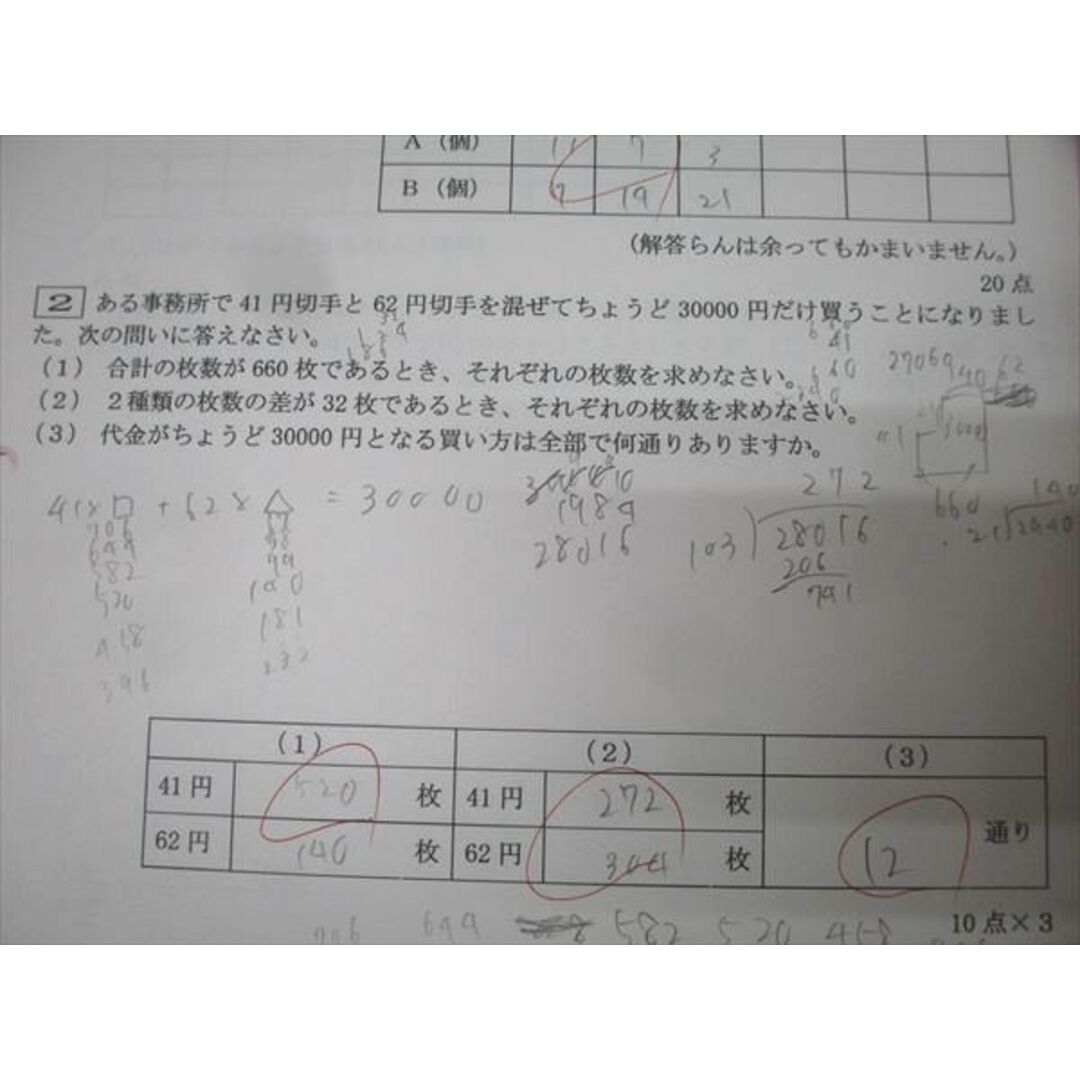 A（個） 11 7 3
B（個） 19 21
（解答らんは余ってもかまいません。）
20点
2 ある事務所で41円切手と62円切手を混ぜてちょうど30000円だけ買うことになりまし
た。次の問いに答えなさい。
（1） 合計の枚数が660枚であるとき、それぞれの枚数を求めなさい。
（2） 2種類の枚数の差が32枚であるとき、それぞれの枚数を求めなさい。
（3） 代金がちょうど30000円となる買い方は全部で何通りありますか。
41×□ + 62×△ = 30000
1984
28016
272
103 28016
206
741
660
706
644
582
520
396
140
181
232
（1） （2） （3）
41円 520 枚 41円 272 枚 12 通り
62円 140 枚 62円 304 枚
706 644 582 520 458
10点×3